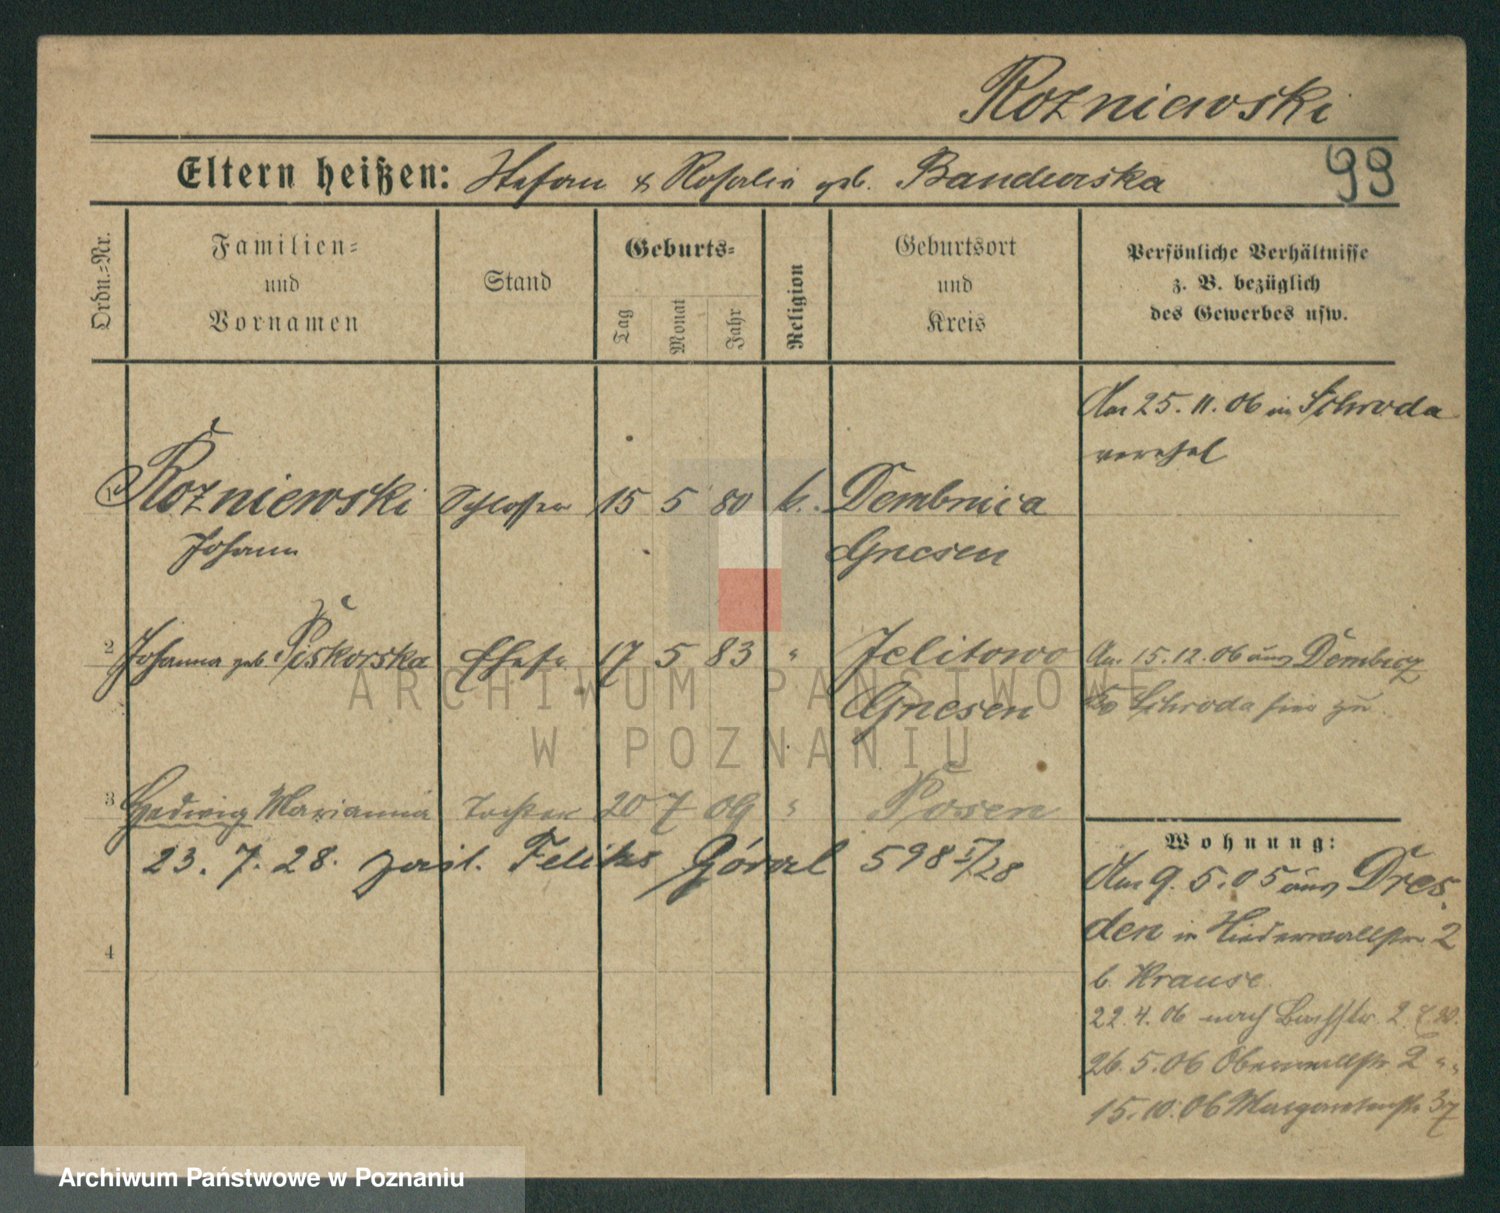 Rozniewski
Eltern heißen: Stefan & Rosalia geb. Bandurska
99
Ordn.-Nr.
Familien-
und
Vornamen
Stand
Geburts-
Tag
Monat
Jahr
Religion
Geburtsort
und
Kreis
Persönliche Verhältnisse
z. B. bezüglich
des Gewerbes usw.
Am 25. 11. 06 in Schroda
verehel
1 Rozniewski Schlosser 15 5 80 k. Dembnica
Johann Gnesen
2 Johanna geb. Piskorska Ehefr. 17 5 83 " Jelitowo
Gnesen
Am 15. 12. 06 aus
Schroda hier zu.
3 Hedwig Marianna Tochter 20 7 09 " Posen
23. 7. 28. Feliks Góral 598 /28
4
Wohnung:
Am 9. 5. 05 aus Dres
den in Niederwallstr 2
b. Krause
22. 4. 06 nach Bachstr. 2
26. 5. 06 Oberwallstr. 2 " "
15. 10. 06 Margaretenstr. 37
ARCHIWUM PAŃSTWOWE
W POZNANIU
Archiwum Państwowe w Poznaniu